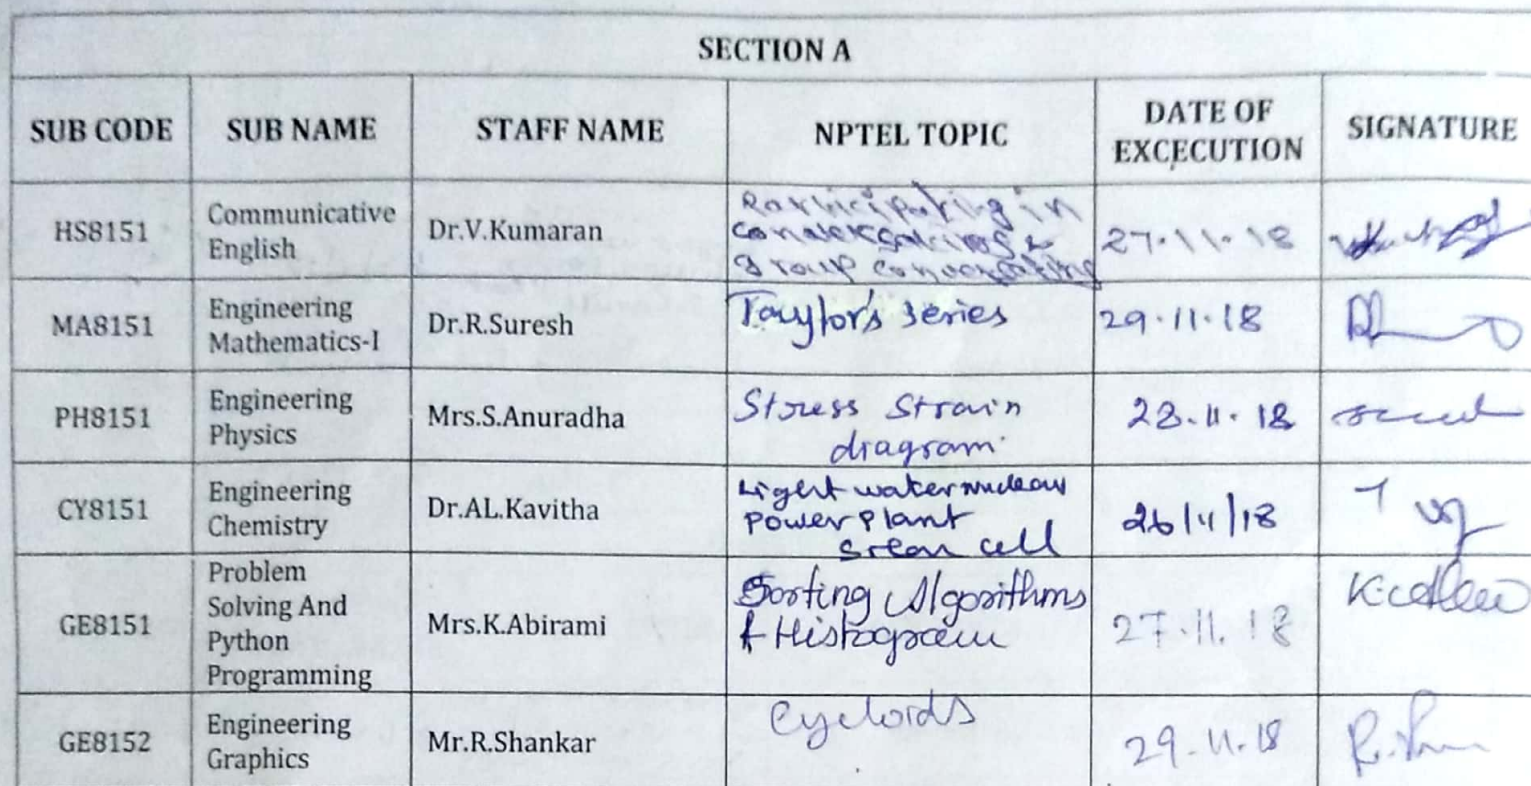 SECTION A
SUB CODE SUB NAME STAFF NAME NPTEL TOPIC DATE OF EXCECUTION SIGNATURE
HS8151 Communicative English Dr.V.Kumaran Participating in conversations & group conversations 27.11.18
MA8151 Engineering Mathematics-I Dr.R.Suresh Taylor's series 29.11.18
PH8151 Engineering Physics Mrs.S.Anuradha Stress Strain diagram 28.11.18
CY8151 Engineering Chemistry Dr.AL.Kavitha Light water nuclear power plant 26/11/18
GE8151 Problem Solving And Python Programming Mrs.K.Abirami Sorting Algorithms & Histogram 27.11.18
GE8152 Engineering Graphics Mr.R.Shankar Cycloids 29.11.18